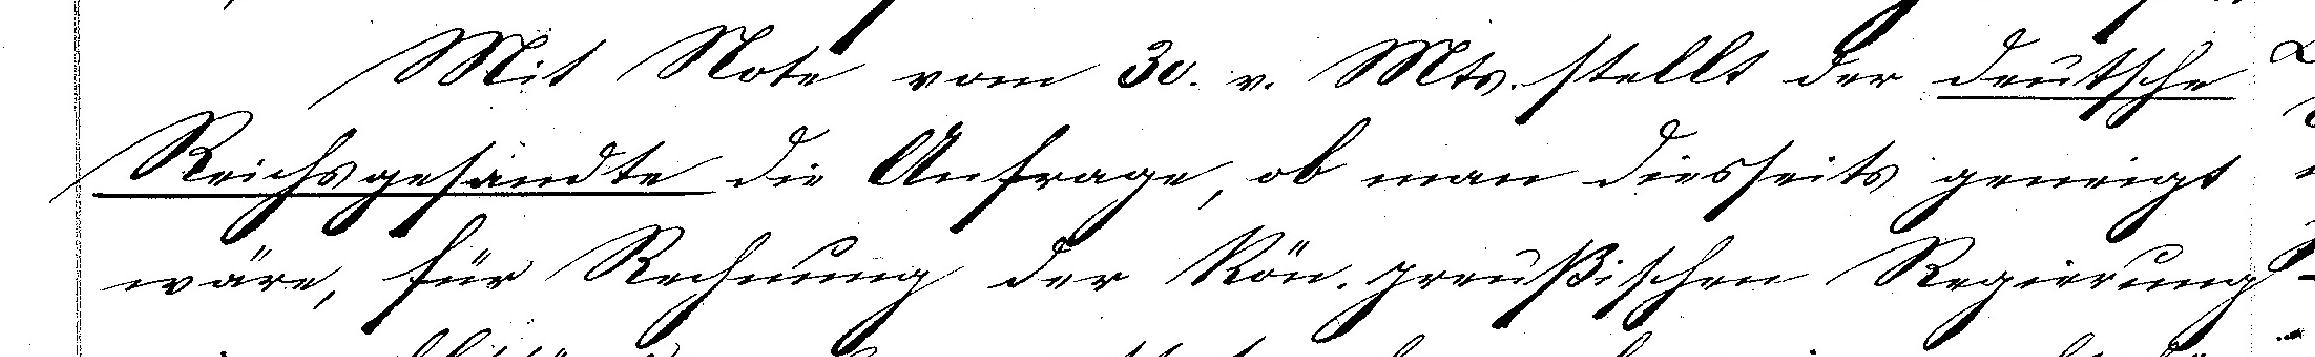 Mit Note vom 30. v. Mts. stellt der deutsche
Reichsgesandte die Anfrage, ob man diesseits geneigt
wäre, für Rechnung der Kön. preußischen Regierung